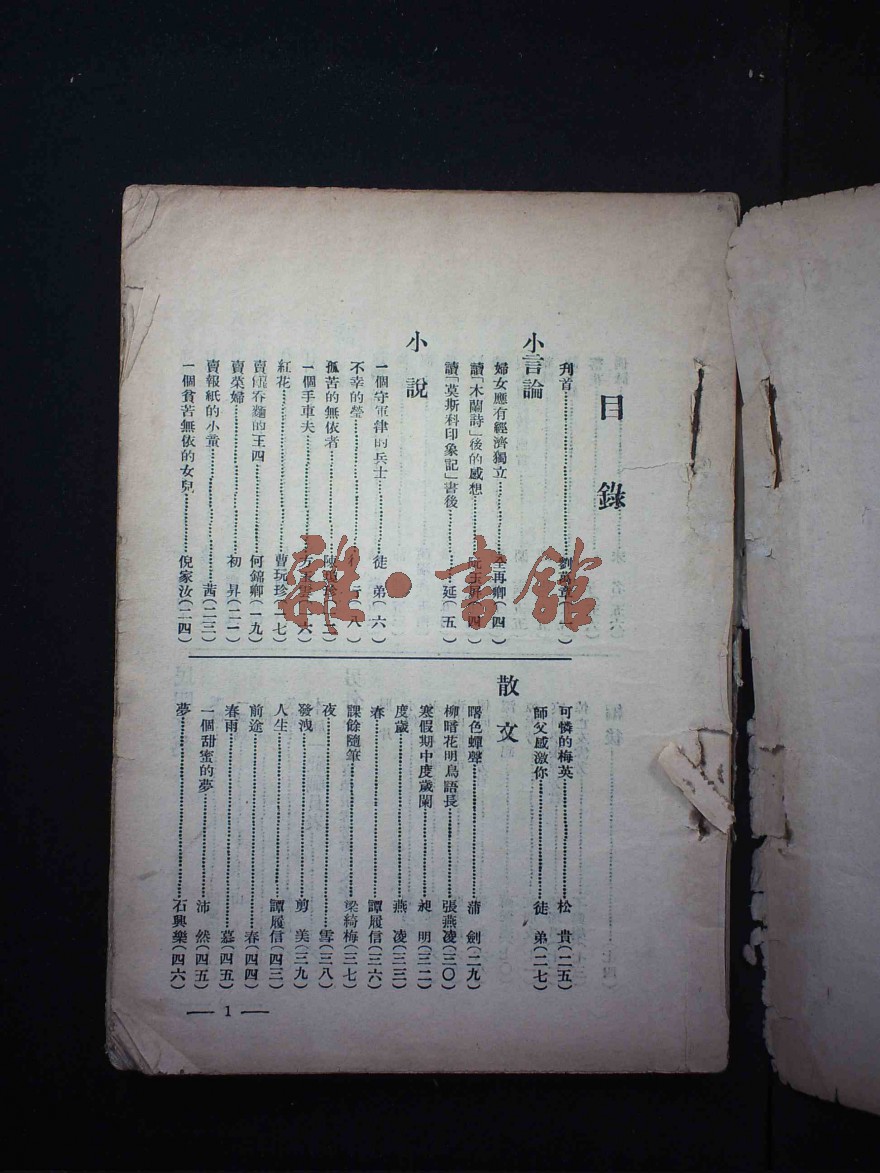 目錄
刋首 劉萬章(一)
小言論
婦女應有經濟獨立 全再卿(四)
讀「木蘭詩」後的感想 阮玉屏(四)
讀「莫斯科印象記」書後 延(五)
小說
一個守軍律的兵士 徒弟(六)
不幸的瑩 行(八)
孤苦的無依者 陳
一個手車夫 方玉
紅花 曹玩珍(一七)
賣 的王四 何錦卿(一九)
賣菜婦 初昇(二一)
賣報紙的小童 茜(二三)
一個貧苦無依的女兒 倪家汝(二四)
可憐的梅英 松貴(二五)
師父感激你 徒弟(二七)
散文
曙色蟬聲 蒲劍(二九)
柳暗花明鳥語長 張燕凌(三〇)
寒假期中度歲閑 昶明(三二)
度歲 燕凌(三三)
春 譚履信(三六)
課餘隨筆 梁綺梅(三七)
夜 雪(三八)
發洩 剪美(三九)
人生 譚履信(四三)
前途 春(四四)
春雨 慕(四五)
一個甜蜜的夢 沛然(四五)
夢 石興樂(四六)
— 1 —
雜·書館